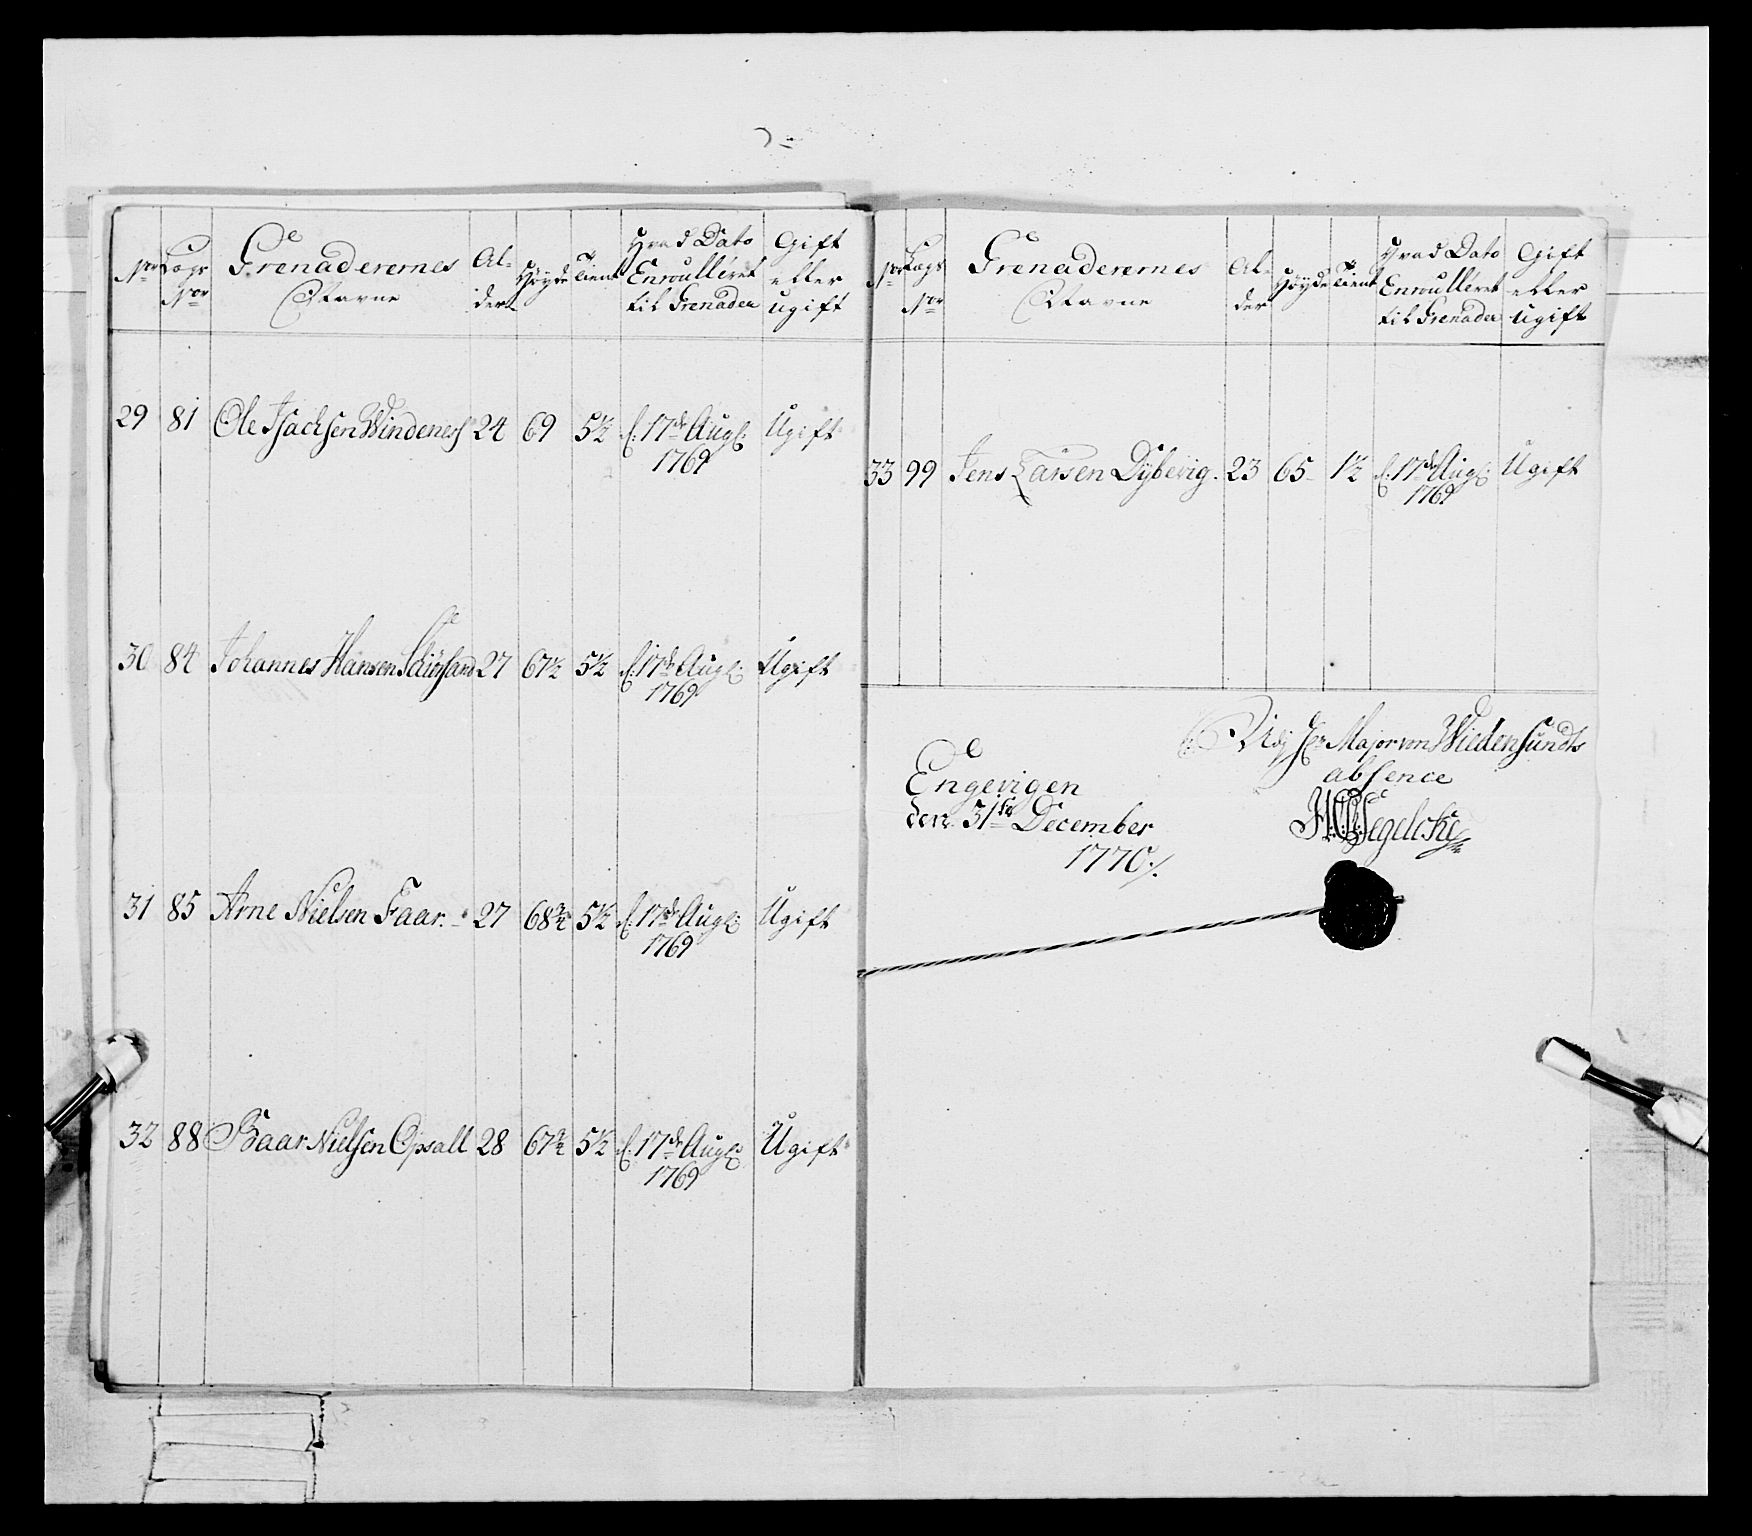 No Lags No Grenaderernes Navne Alder Høyde Tient Hvad Dato Enroulleret til Grenader Gift eller ugift
29 81 Ole Isachsen Windenes 24 69 5½ d: 17de Aug: 1769 Ugift
30 84 Johannes Hansen 27 67½ 5½ d: 17de Aug: 1769 Ugift
31 85 Arne Nielsen Faar. 27 68¾ 5½ d: 17de Aug: 1769 Ugift
32 88 Baar Nielsen Opsall 28 67¾ 5½ d: 17de Aug: 1769 Ugift
No Lags No Grenaderernes Navne Alder Høyde Tient Hvad Dato Enroulleret til Grenader Gift eller ugift
33 99 Jens Larsen Dybevig. 23 65 1½ d: 17de Aug: 1769 Ugift
Engevigen
den 31te December
1770./.
Udj Hr Major von Wiedensunds
absence
Segelcke